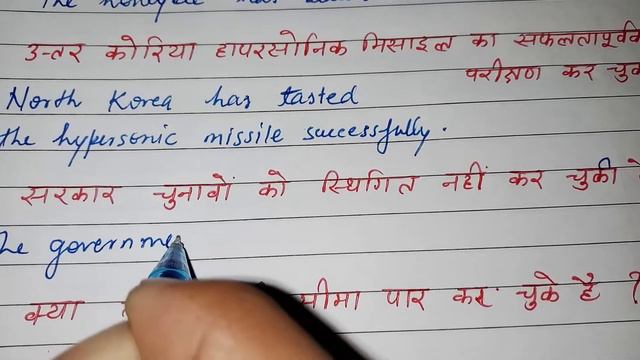 उ-तर कोरिया हापरसोनिक मिसाइल का सफलतापूर्वक
परीक्षण कर चुका
North Korea has tasted
the hypersonic missile successfully.
सरकार चुनावों को स्थिगित नहीं कर चुकी
The governme
क्या सीमा पार कर चुके है ?